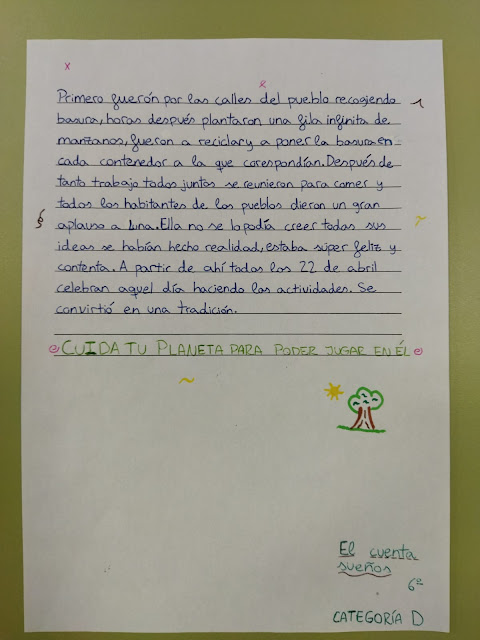 Primero fuerón por las calles del pueblo recogiendo
basura, horas después plantaron una fila infinita de
manzanos, fueron a reciclar y a poner la basura en
cada contenedor a la que corespondían. Después de
tanto trabajo todos juntos se reunieron para comer y
todos los habitantes de los pueblos dieron un gran
aplauso a Luna. Ella no se lo podía creer todas sus
ideas se habían hecho realidad, estaba súper feliz y
contenta. A partir de ahí todos los 22 de abril
celebran aquel día haciendo las actividades. Se
convirtió en una tradición.
CUIDA TU PLANETA PARA PODER JUGAR EN ÉL
El cuenta
sueños
6º
CATEGORÍA D